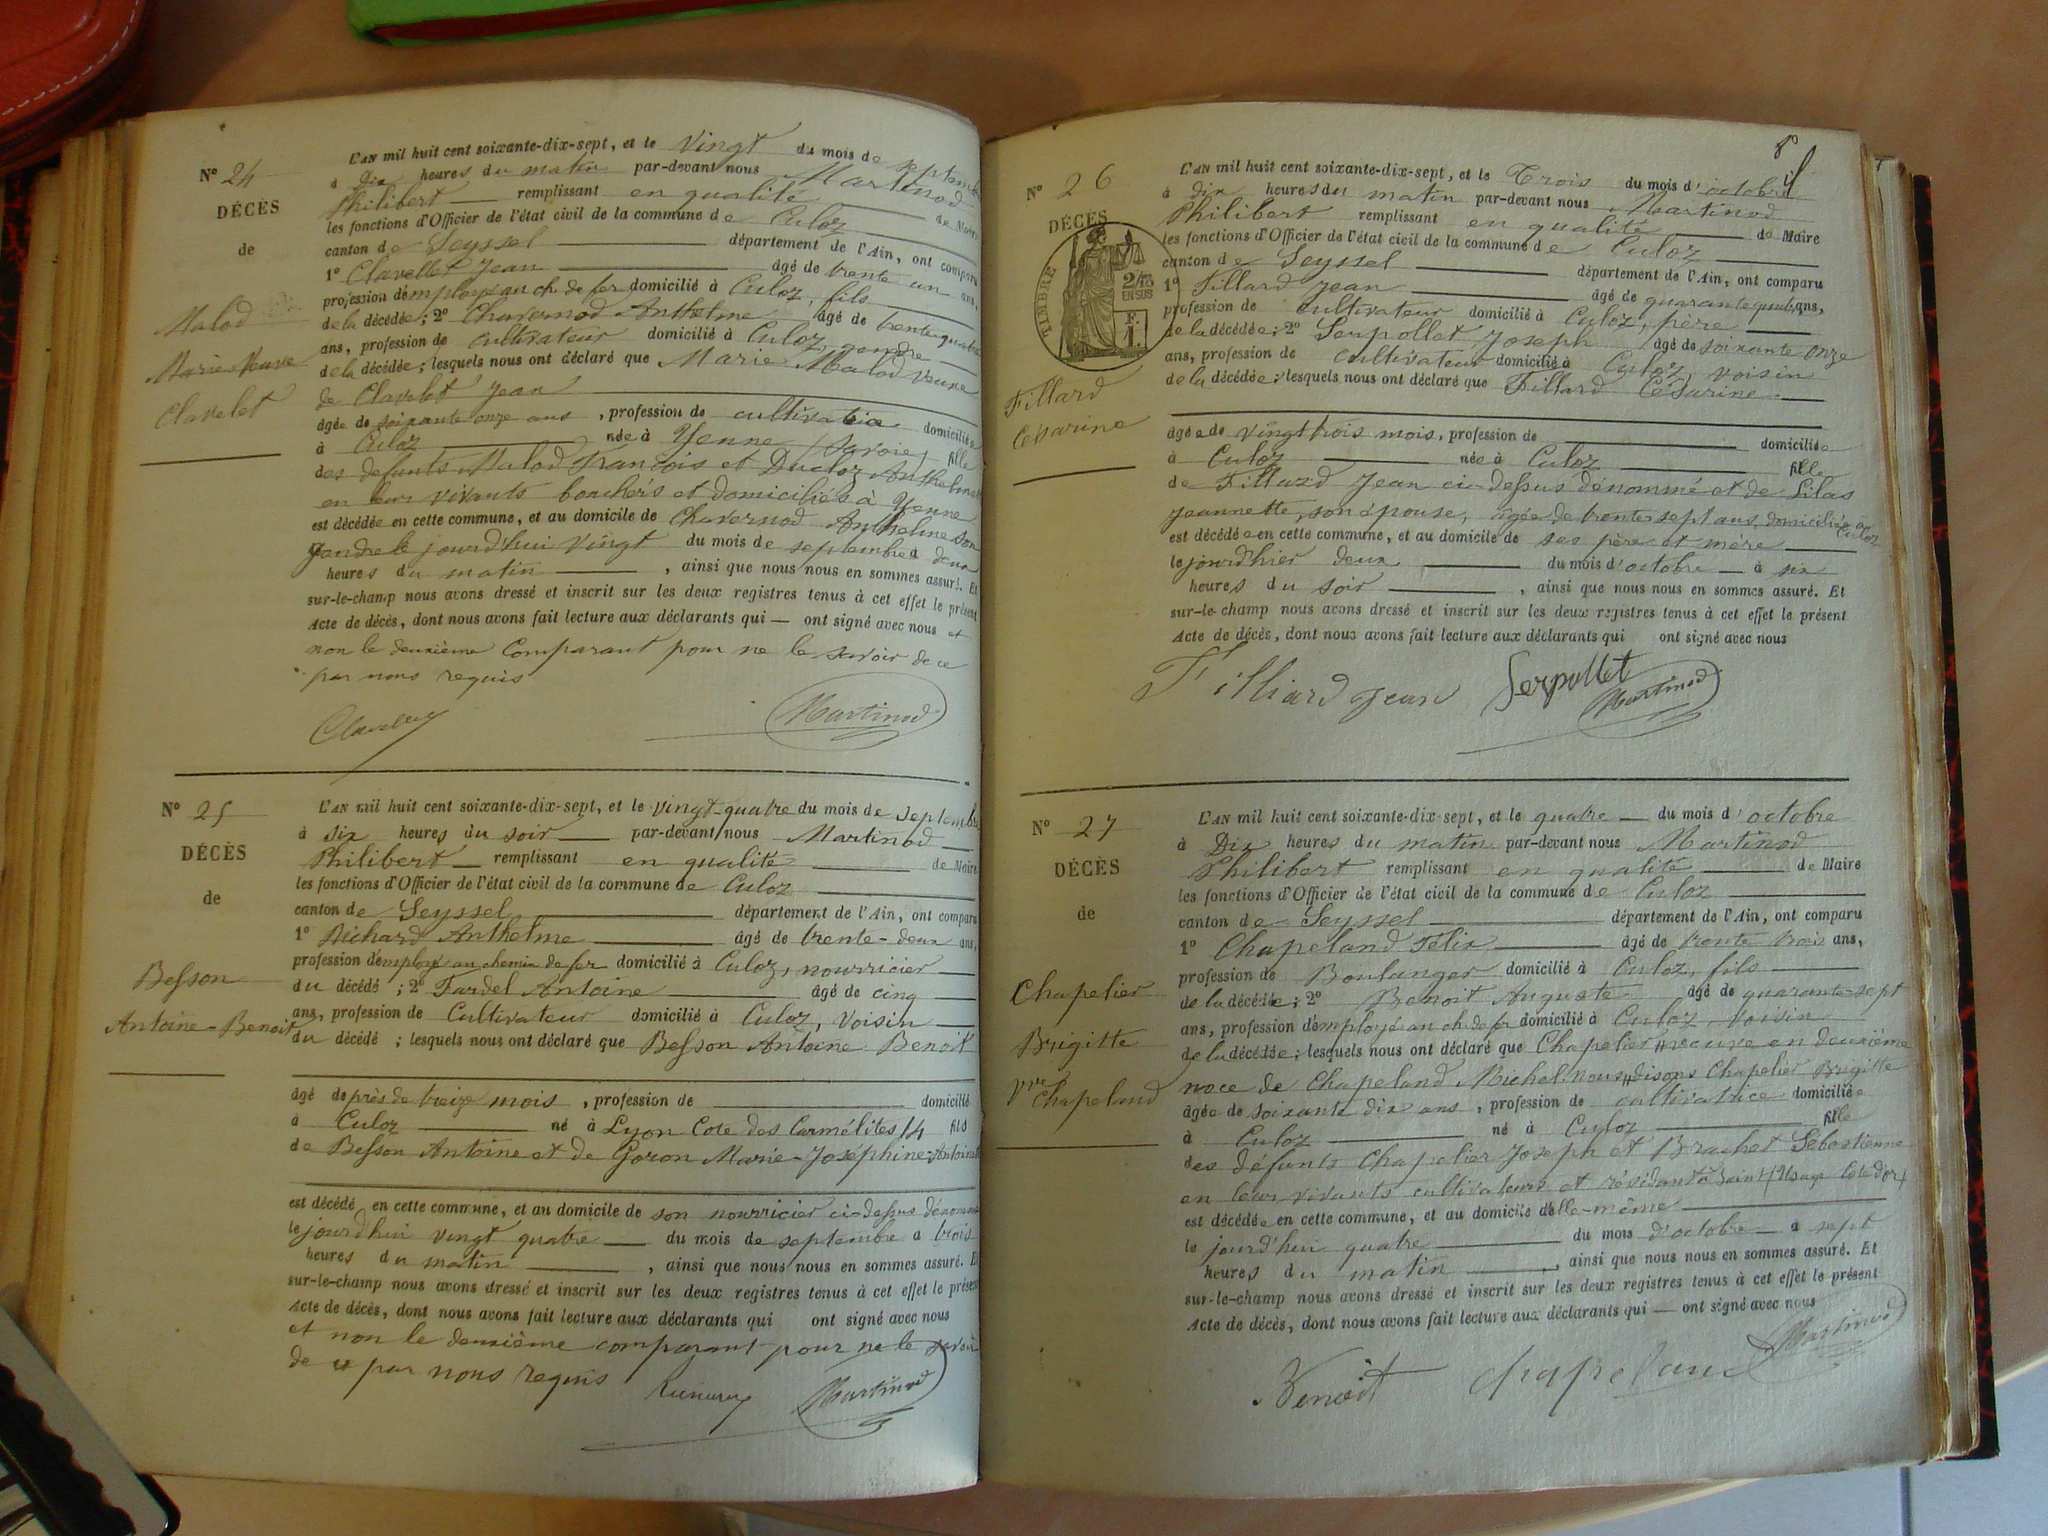 N° 24
DÉCÈS
de
Malod
Marie Veuve
Clavelet
L'AN mil huit cent soixante-dix-sept, et le Vingt du mois de septembre
à dix heures du matin par-devant nous Martinod
Philibert remplissant en qualité de Maire
les fonctions d'Officier de l'état civil de la commune de Culoz
canton de Seyssel département de l'Ain, ont comparu
1° Clavellet Jean âgé de trente un ans,
profession d'employé au ch. de fer domicilié à Culoz, fils
de la décédée; 2° Chavernod Anthelme âgé de trente quatre
ans, profession de cultivateur domicilié à Culoz, gendre
de la décédée; lesquels nous ont déclaré que Marie Malod veuve
de Clavelet Jean
âgée de soixante onze ans, profession de cultivatrice domiciliée
à Culoz née à Yenne (Savoie) fille
des défunts Malod François et Ducloz Anthelmette
en leurs vivants bouchers et domiciliés à Yenne
est décédée en cette commune, et au domicile de Chavernod Anthelme son
gendre le jourd'hui vingt du mois de septembre à deux
heures du matin, ainsi que nous nous en sommes assuré. Et
sur-le-champ nous avons dressé et inscrit sur les deux registres tenus à cet effet le présent
Acte de décès, dont nous avons fait lecture aux déclarants qui — ont signé avec nous et
non le deuxième Comparant pour ne le savoir de ce
par nous requis
Martinod
N° 25
DÉCÈS
de
Besson
Antoine-Benoit
L'AN mil huit cent soixante-dix-sept, et le vingt-quatre du mois de septembre
à six heures du soir par-devant nous Martinod
Philibert remplissant en qualité de Maire
les fonctions d'Officier de l'état civil de la commune de Culoz
canton de Seyssel département de l'Ain, ont comparu
1° Richard Anthelme âgé de trente-deux ans,
profession d'employé au chemin de fer domicilié à Culoz, nourricier
du décédé; 2° Fardel Antoine âgé de cinq
ans, profession de Cultivateur domicilié à Culoz, voisin
du décédé; lesquels nous ont déclaré que Besson Antoine Benoit
âgé de près de treize mois, profession de domicilié
à Culoz né à Lyon Cote des Carmélites 14 fils
de Besson Antoine et de Goron Marie-Joséphine-Antoinette
est décédé en cette commune, et au domicile de son nourricier ci-dessus dénommé
le jourd'hui vingt quatre du mois de septembre à trois
heures du matin, ainsi que nous nous en sommes assuré. Et
sur-le-champ nous avons dressé et inscrit sur les deux registres tenus à cet effet le présent
Acte de décès, dont nous avons fait lecture aux déclarants qui ont signé avec nous
et non le deuxième comparant pour ne le savoir
de ce par nous requis
Martinod
N° 26
DÉCÈS
TIMBRE
2/10
EN SUS
F.
1.
Fillard
Césarine
L'AN mil huit cent soixante-dix-sept, et le Trois du mois d'octobre
à dix heures du matin par-devant nous Martinod
Philibert remplissant en qualité de Maire
les fonctions d'Officier de l'état civil de la commune de Culoz
canton de Seyssel département de l'Ain, ont comparu
1° Fillard Jean âgé de quarante ans,
profession de cultivateur domicilié à Culoz, père
de la décédée; 2° Serpollet Joseph âgé de soixante onze
ans, profession de cultivateur domicilié à Culoz, voisin
de la décédée; lesquels nous ont déclaré que Fillard Césarine
âgée de vingt trois mois, profession de domiciliée
à Culoz née à Culoz fille
de Fillard Jean ci-dessus dénommé et de Lilas
Jeannette, son épouse, âgée de trente sept ans, domiciliés à Culoz
est décédée en cette commune, et au domicile de ses père et mère
le jourd'hier deux du mois d'octobre à six
heures du soir, ainsi que nous nous en sommes assuré. Et
sur-le-champ nous avons dressé et inscrit sur les deux registres tenus à cet effet le présent
Acte de décès, dont nous avons fait lecture aux déclarants qui ont signé avec nous
Filliard Jean Serpollet
Martinod
N° 27
DÉCÈS
de
Chapelier
Brigitte
Vve Chapeland
L'AN mil huit cent soixante-dix-sept, et le quatre du mois d'octobre
à Dix heures du matin par-devant nous Martinod
Philibert remplissant en qualité de Maire
les fonctions d'Officier de l'état civil de la commune de Culoz
canton de Seyssel département de l'Ain, ont comparu
1° Chapeland Félix âgé de trente trois ans,
profession de Boulanger domicilié à Culoz, fils
de la décédée; 2° Benoit Auguste âgé de quarante-sept
ans, profession d'employé au ch. de fer domicilié à Culoz, voisin
de la décédée; lesquels nous ont déclaré que Chapelier veuve en deuxième
noce de Chapeland Michel. nous disons Chapelier Brigitte
âgée de soixante dix ans, profession de cultivatrice domiciliée
à Culoz né à Culoz fille
des défunts Chapelier Joseph et Brachet Sébastienne
en leurs vivants cultivateurs et résidant à Saint Usage Cote d'or
est décédée en cette commune, et au domicile d'elle-même
le jourd'hui quatre du mois d'octobre à sept
heures du matin, ainsi que nous nous en sommes assuré. Et
sur-le-champ nous avons dressé et inscrit sur les deux registres tenus à cet effet le présent
Acte de décès, dont nous avons fait lecture aux déclarants qui — ont signé avec nous
Benoit Chapeland Martinod